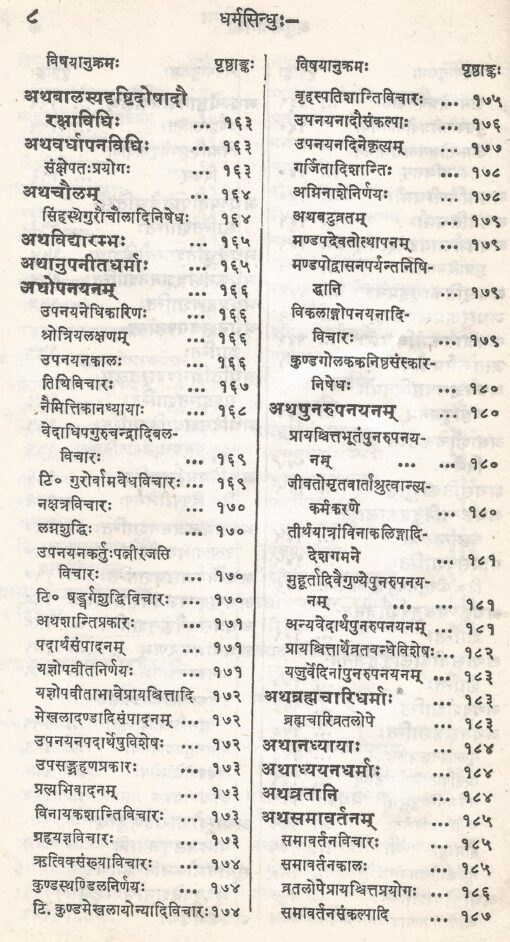 ८ धर्मसिन्धुः–
विषयानुक्रमः पृष्ठाङ्कः
अथबालस्यदृष्टिदोषादौ
रक्षाविधिः ... १६३
अथवर्धापनविधिः ... १६३
संक्षेपतःप्रयोगः ... १६३
अथचौलम् ... १६४
सिंहस्थेगुरौचौलादिनिषेधः १६४
अथविद्यारम्भः ... १६५
अथानुपनीतधर्माः ... १६५
अथोपनयनम् ... १६६
उपनयनेधिकारिणः ... १६६
श्रोत्रियलक्षणम् ... १६६
उपनयनकालः ... १६६
तिथिविचारः ... १६७
नैमित्तिकानध्यायाः ... १६८
वेदाधिपगुरुचन्द्रादिबल-
विचारः ... १६९
टि० गुरोर्वामवेधविचारः ... १६९
नक्षत्रविचारः ... १७०
लग्नशुद्धिः ... १७०
उपनयनकर्तुःपत्नीरजसि
विचारः ... १७०
टि० षड्वर्गशुद्धिविचारः ... १७०
अथशान्तिप्रकारः ... १७१
पदार्थसंपादनम् ... १७१
यज्ञोपवीतनिर्णयः ... १७१
यज्ञोपवीताभावेप्रायश्चित्तादि १७२
मेखलादण्डादिसंपादनम् ... १७२
उपनयनपदार्थेषुविशेषः ... १७२
उपसङ्ग्रहणप्रकारः ... १७३
प्रत्यभिवादनम् ... १७३
विनायकशान्तिविचारः ... १७३
ग्रहयज्ञविचारः ... १७३
ऋत्विक्संख्याविचारः ... १७४
कुण्डस्थण्डिलनिर्णयः ... १७४
टि. कुण्डमेखलायोन्यादिविचारः १७४
विषयानुक्रमः पृष्ठाङ्कः
बृहस्पतिशान्तिविचारः ... १७५
उपनयनादौसंकल्पाः ... १७६
उपनयनदिनेकृत्यम् ... १७७
गर्जितादिशान्तिः ... १७८
अग्निनाशेनिर्णयः ... १७८
अथबटुव्रतम् ... १७९
मण्डपदेवतोत्थापनम् ... १७९
मण्डपोद्वासनपर्यन्तनिषि-
द्धानि ... १७९
विकलाङ्गोपनयनादि-
विचारः ... १७९
कुण्डगोलककनिष्ठसंस्कार-
निषेधः ... १८०
अथपुनरुपनयनम् ... १८०
प्रायश्चित्तभूतंपुनरुपनय-
नम् ... ... १८०
जीवतोमृतवार्ताश्रुत्वान्त्य-
कर्मकरणे ... १८०
तीर्थयात्रांविनाकलिङ्गादि-
देशगमने ... १८१
मुहूर्तादिवैगुण्येपुनरुपनय-
नम् ... ... १८१
अन्यवेदार्थपुनरुपनयनम् ... १८१
प्रायश्चित्तार्थेव्रतबन्धेविशेषः ... १८२
यजुर्वेदिनांपुनरुपनयनम् ... १८३
अथब्रह्मचारिधर्माः ... १८३
ब्रह्मचारिव्रतलोपे ... १८३
अथानध्यायाः ... १८४
अथाध्ययनधर्माः ... १८४
अथव्रतानि ... १८४
अथसमावर्तनम् ... १८५
समावर्तनविचारः ... १८५
समावर्तनकालः ... १८५
व्रतलोपेप्रायश्चित्तप्रयोगः ... १८६
समावर्तनसंकल्पादि ... १८७